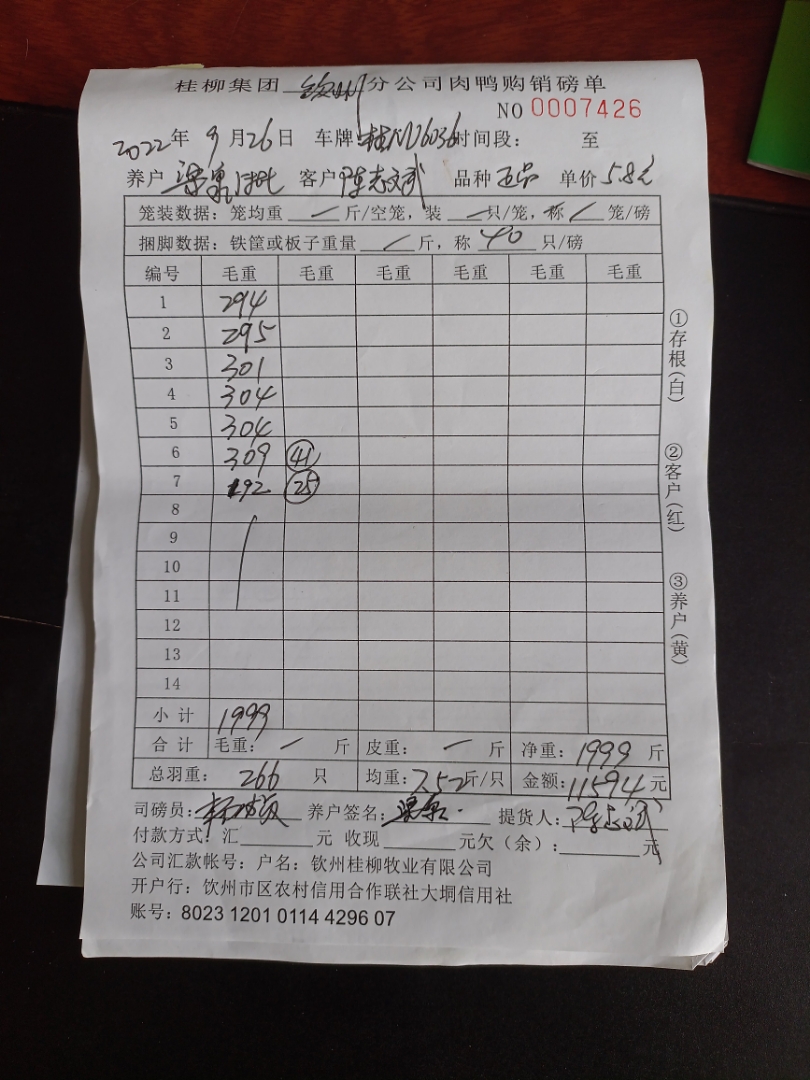 桂柳集团 钦州 分公司肉鸭购销磅单
NO 0007426
2022年 9月26日 车牌:桂N06036时间段: 至
养户 梁 客户 陈志文武 品种 单价 5.8元
笼装数据:笼均重 / 斤/空笼,装 / 只/笼,称 / 笼/磅
捆脚数据:铁筐或板子重量 / 斤,称 40 只/磅
编号 毛重 毛重 毛重 毛重 毛重 毛重
1 294
2 295
3 301
4 304
5 304
6 309 41
7 192 25
8
9
10
11
12
13
14
小计 1999
合计 毛重: 一 斤 皮重: 一 斤 净重: 1999 斤
总羽重: 266 只 均重: 7.52斤/只 金额: 11594元
司磅员: 养户签名: 梁 提货人: 陈志文武
付款方式:汇 元 收现 元欠(余): 元
公司汇款帐号:户名:钦州桂柳牧业有限公司
开户行:钦州市区农村信用合作联社大垌信用社
账号:8023 1201 0114 4296 07
①存根(白)
②客户(红)
③养户(黄)